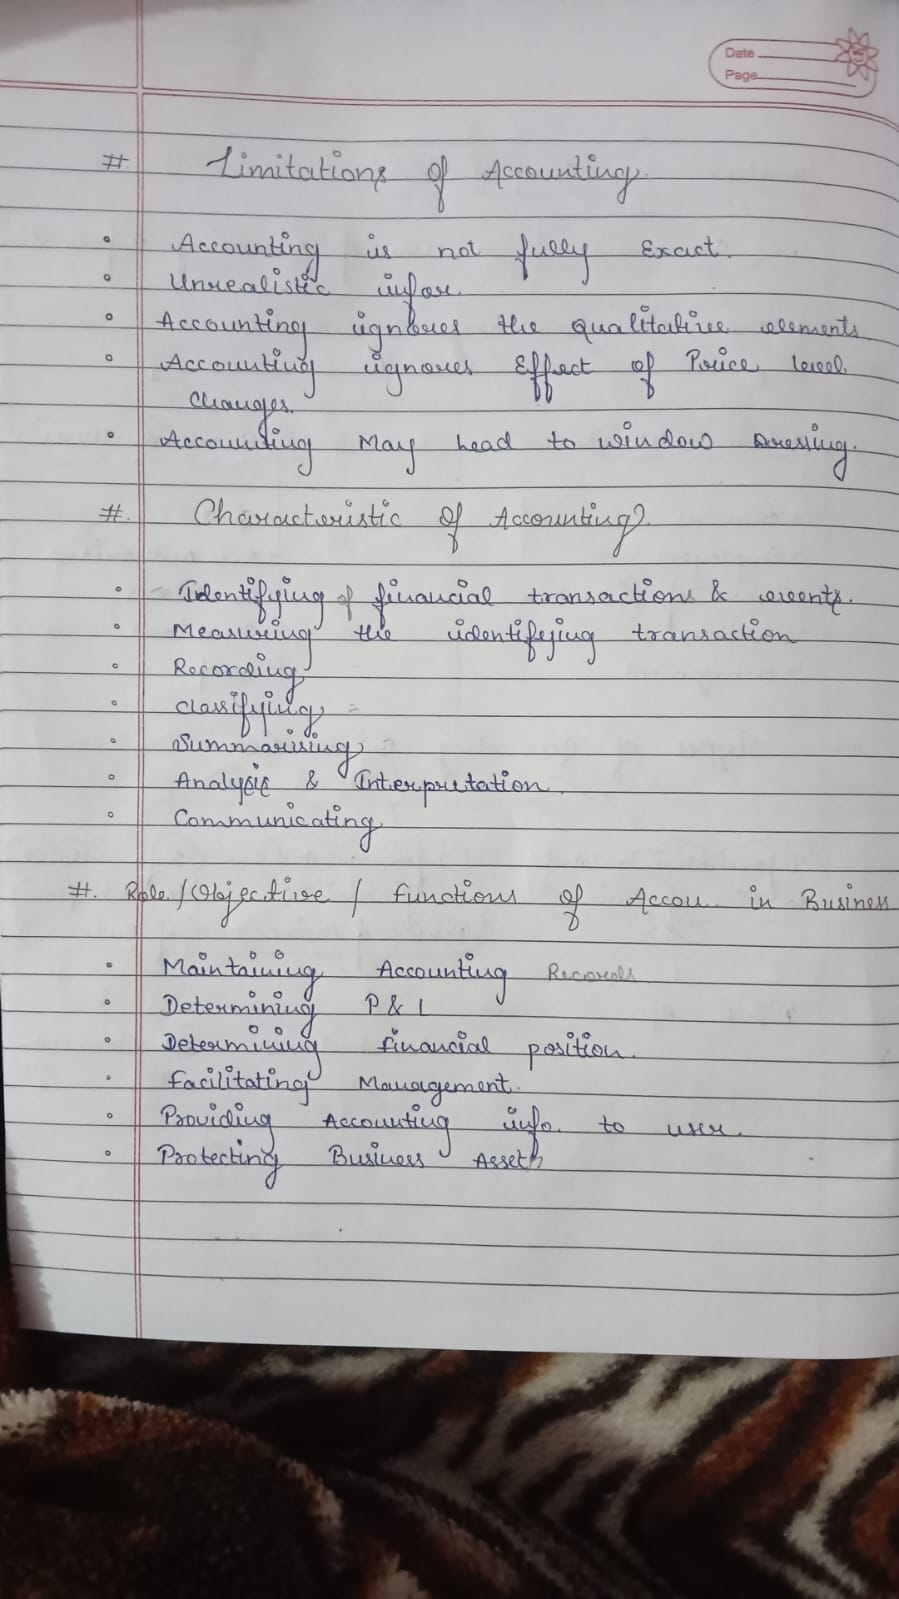 Date
Page
# Limitations of Accounting.
• Accounting is not fully Exact.
• Unrealistic infor.
• Accounting ignores the qualitative elements
• Accounting ignores Effect of Price level
Changes.
• Accounting May head to window Dressing.
#. Characteristic of Accounting?
• Identifying of financial transactions & events.
• Measuring the identifying transaction
• Recording
• Classifying =
• Summarising
• Analysis & Interpretation.
• Communicating
#. Role/Objective / functions of Accou. in Business
• Maintaining Accounting Records
• Determining P & L
• Determining financial position.
• facilitating Management.
• Providing Accounting info. to user.
• Protecting Business Assets